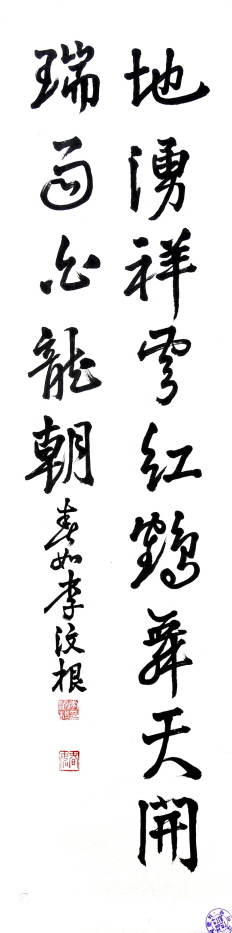 地湧祥雲紅鶴舞天開
瑞雨白龍朝
春如李汶根